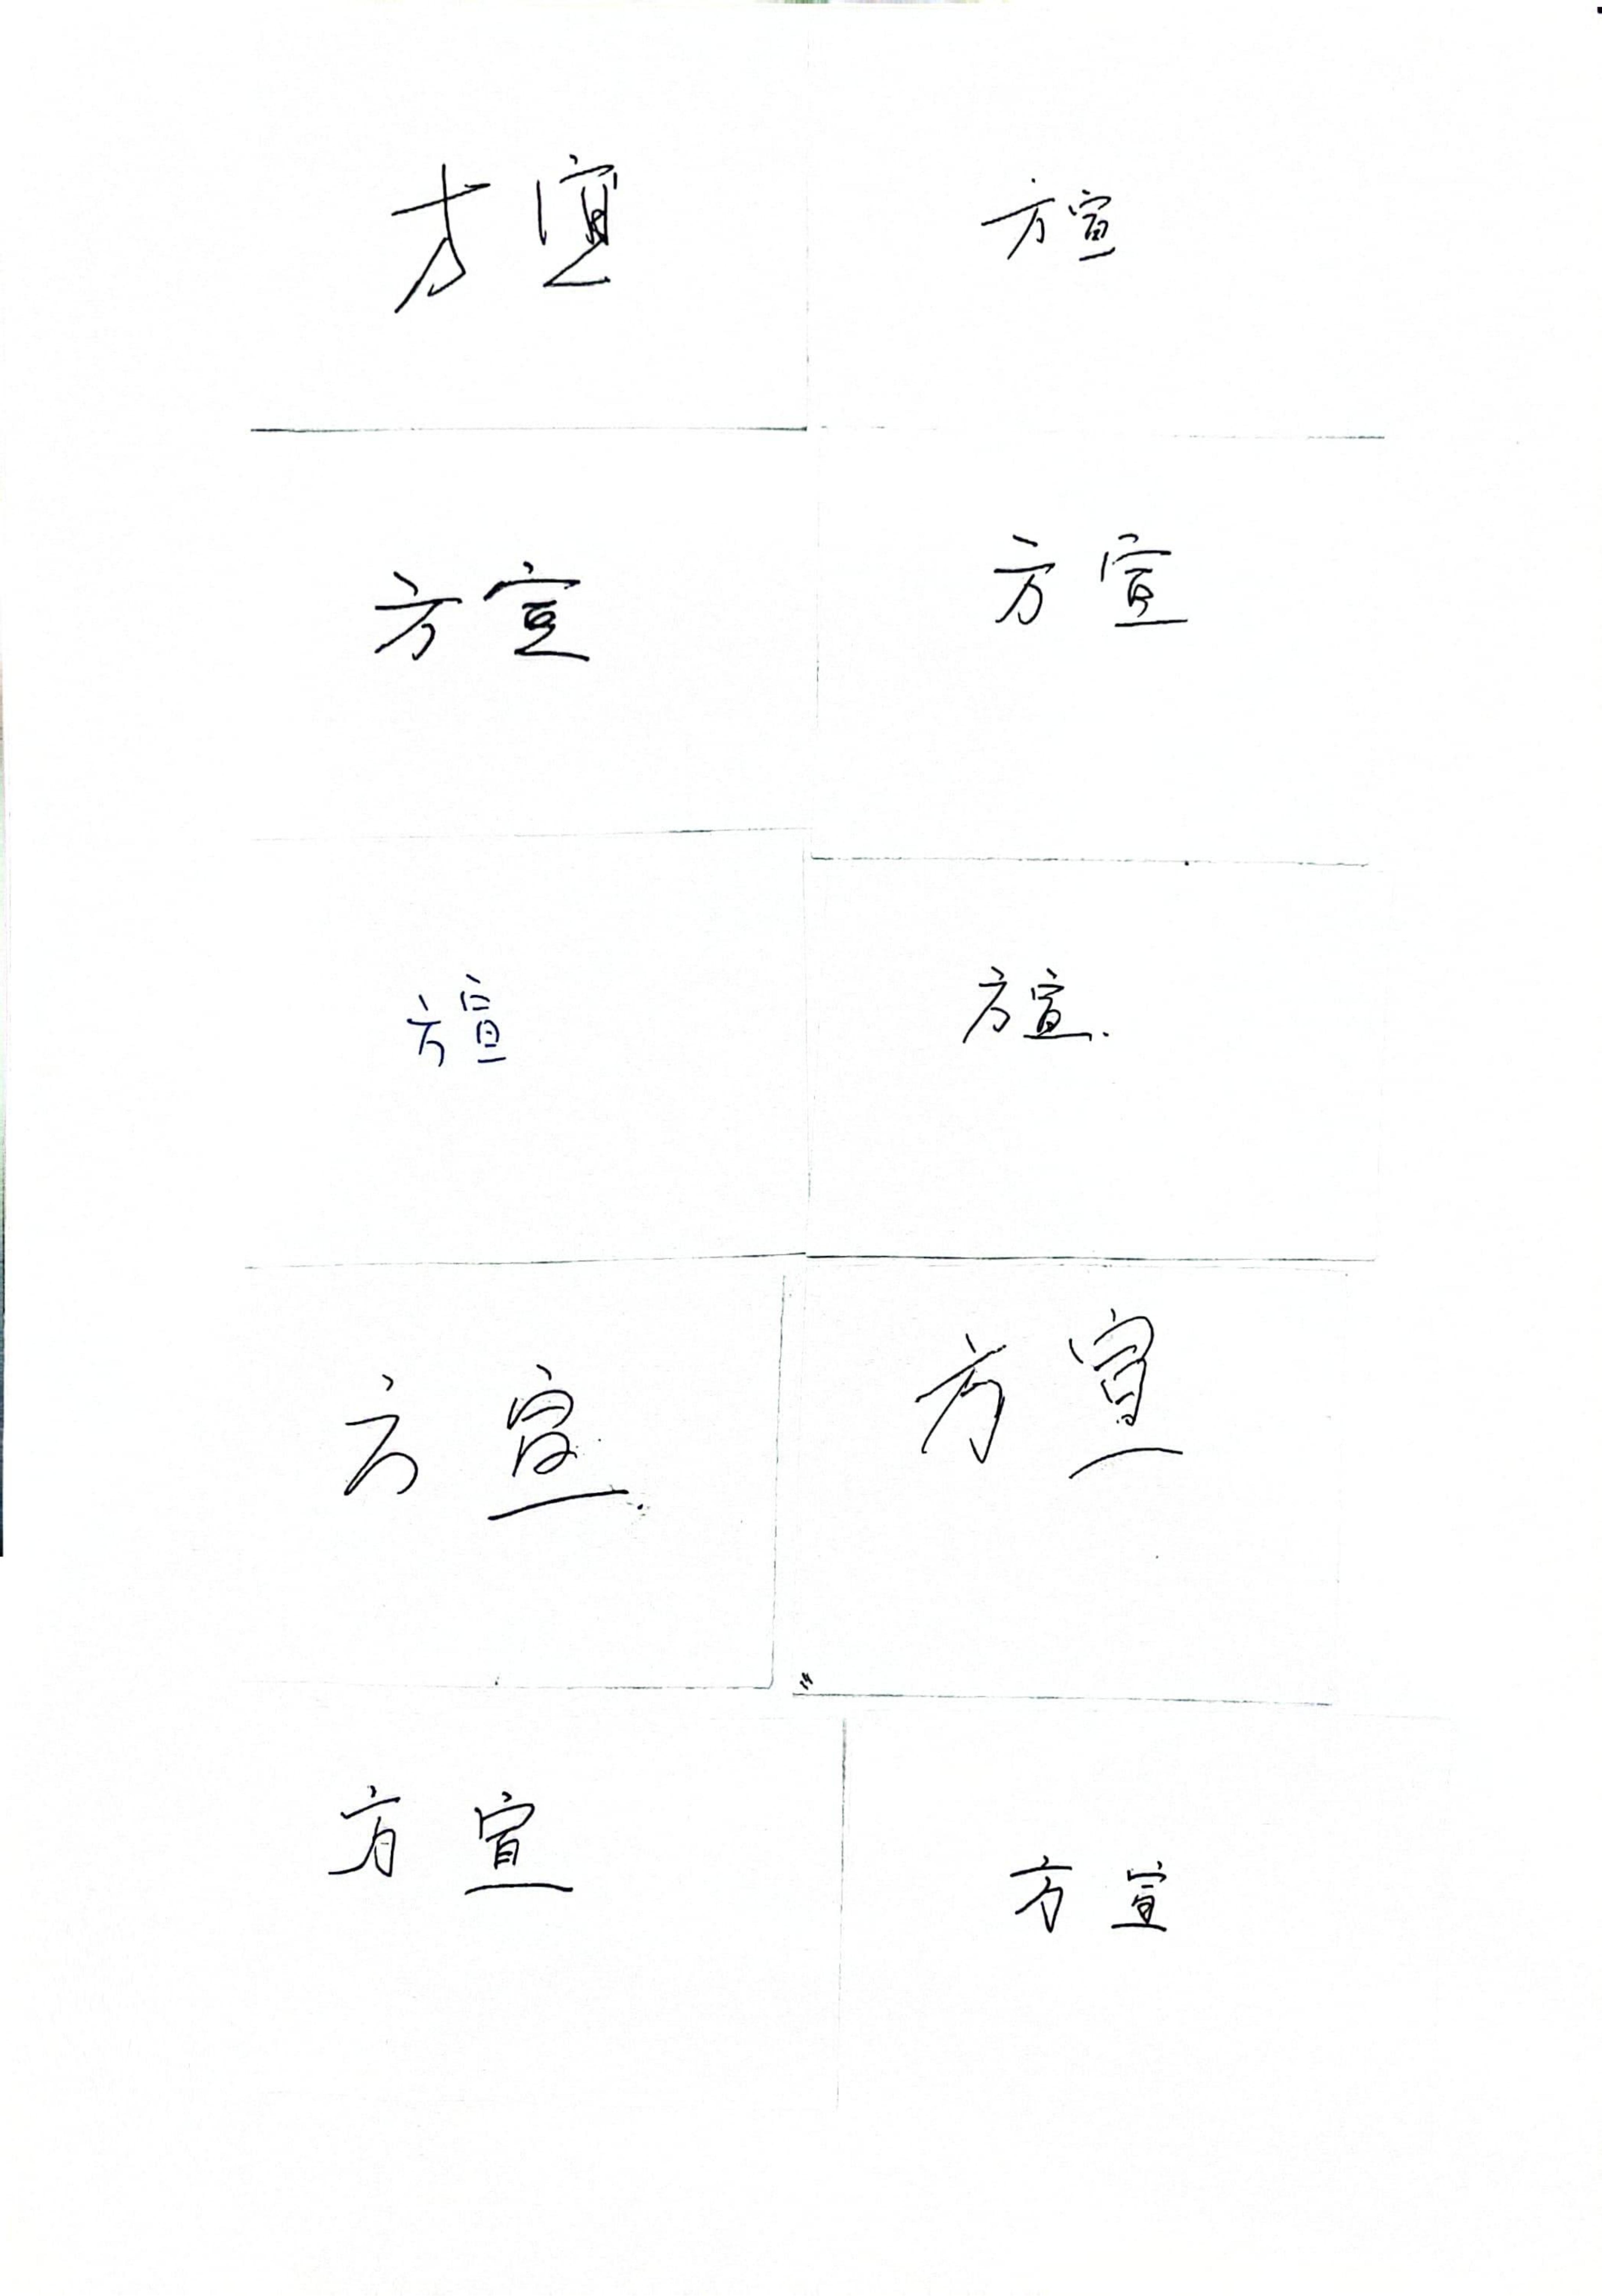 方宣
方宣
方宣
方宣
方宣
方宣.
方宣
方宣
方宣
方宣